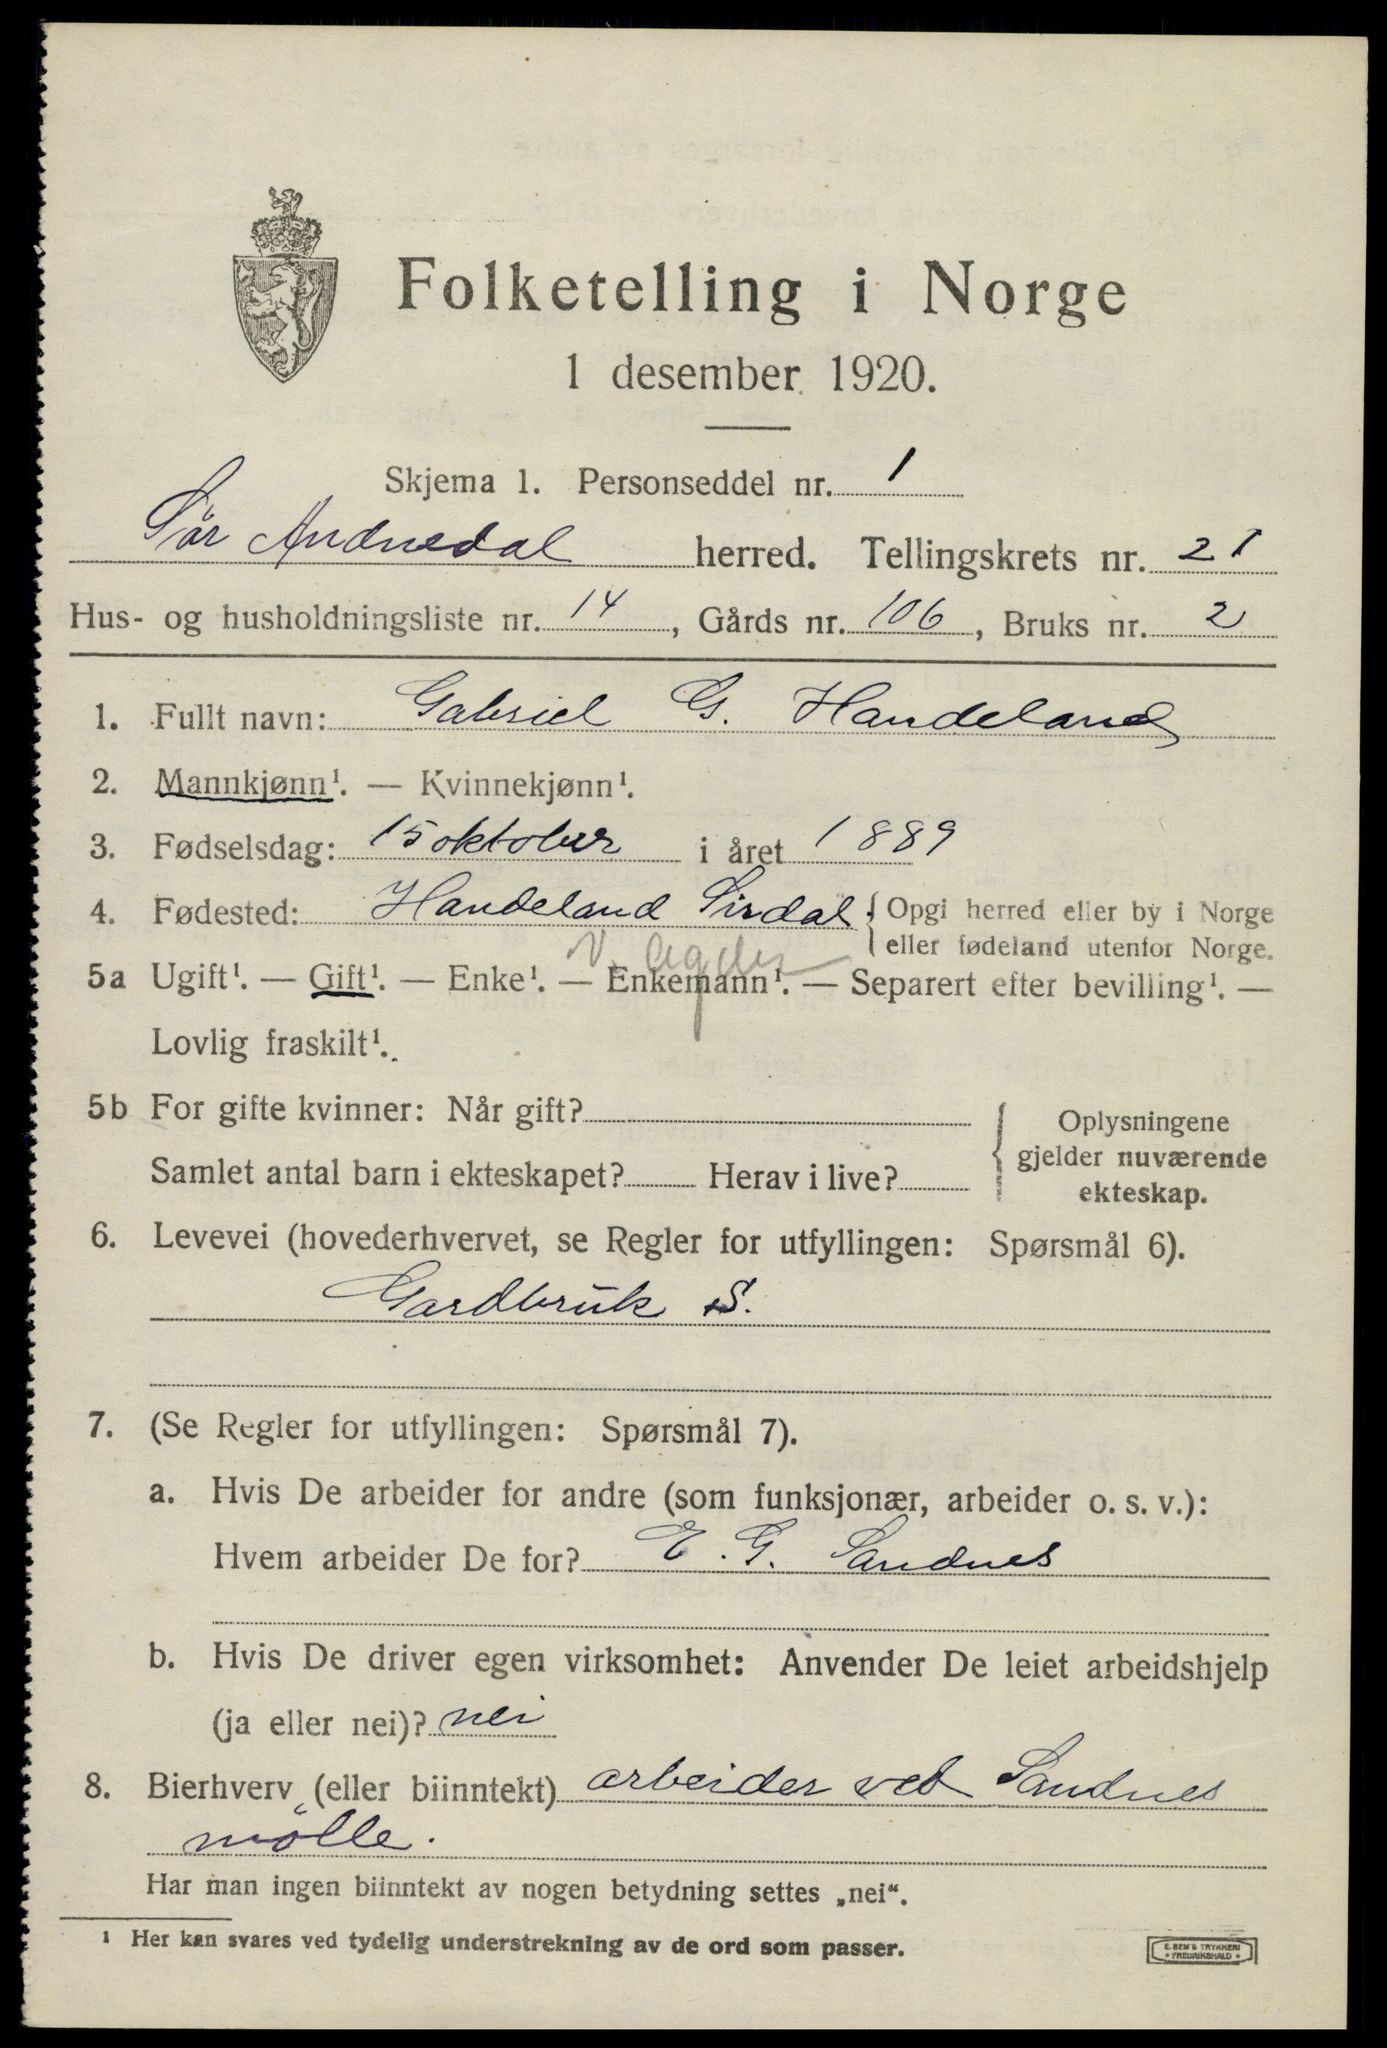 Folketelling i Norge
1 desember 1920.
Skjema 1. Personseddel nr. 1
Sør Audnedal herred. Tellingskrets nr. 21
Hus- og husholdningsliste nr. 14, Gårds nr. 106, Bruks nr. 2
1. Fullt navn: Gabriel G. Handeland
2. Mannkjønn¹. — Kvinnekjønn¹.
3. Fødselsdag: 15 oktober i året 1889
4. Fødested: Handeland Sirdal { Opgi herred eller by i Norge
eller fødeland utenfor Norge.
V. Agder
5a Ugift¹. — Gift¹. — Enke¹. — Enkemann¹. — Separert efter bevilling¹. —
Lovlig fraskilt¹.
5b For gifte kvinner: Når gift?
Samlet antal barn i ekteskapet? Herav i live?
{ Oplysningene
gjelder nuværende
ekteskap.
6. Levevei (hovederhvervet, se Regler for utfyllingen: Spørsmål 6).
Gardbruk S.
7. (Se Regler for utfyllingen: Spørsmål 7).
a. Hvis De arbeider for andre (som funksjonær, arbeider o. s. v.):
Hvem arbeider De for? E. G. Sandnes
b. Hvis De driver egen virksomhet: Anvender De leiet arbeidshjelp
(ja eller nei)? nei
8. Bierhverv (eller biinntekt) arbeider ved Sandnes
mölle.
Har man ingen biinntekt av nogen betydning settes „nei“.
¹ Her kan svares ved tydelig understrekning av de ord som passer.
E. SEM'S TRYKKERI
* FREDRIKSHALD *